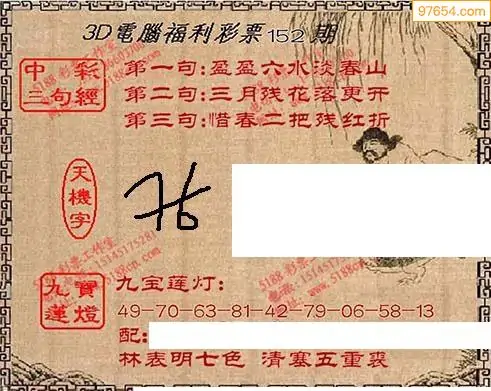 97654.com
3D電腦福利彩票152期
中彩
三句經
第一句:盈盈六水淡春山
第二句:三月残花落更开
第三句:惜春二把残红折
天機字
九寶
蓮燈
九宝莲灯:
49-70-63-81-42-79-06-58-13
配:
林表明七色 清塞五重裘